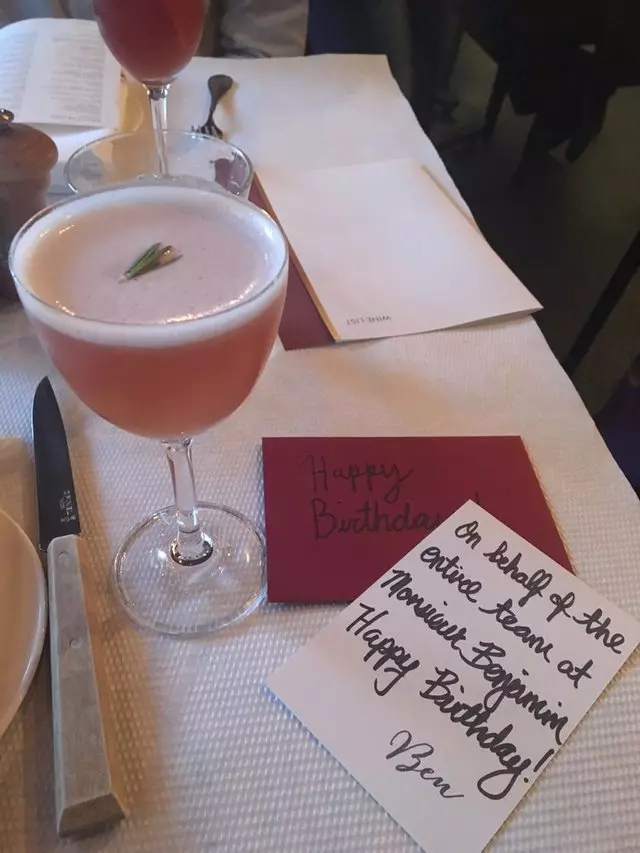 WINE LIST
Happy
Birthday!
On behalf of the
entire team at
Monsieur Benjamin
Happy Birthday!
Ben